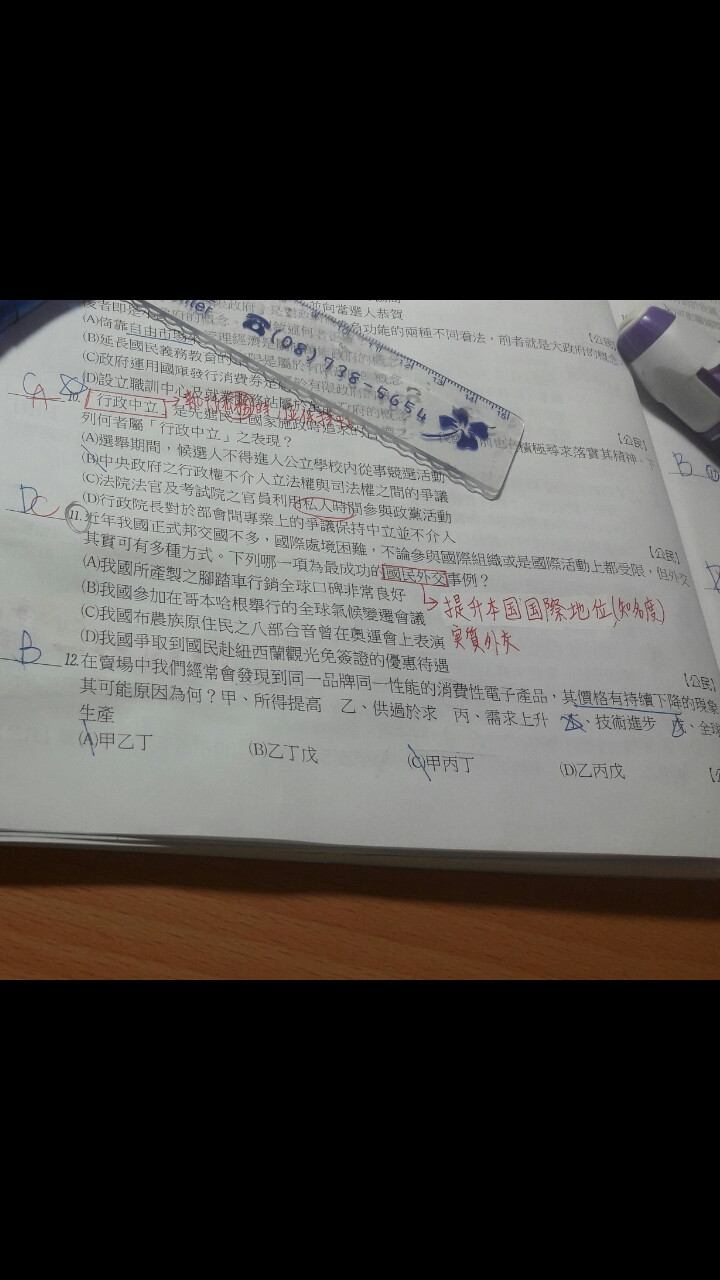 並向當選人恭賀
(A)倚靠自由市場
功能的兩種不同看法,前者就是大政府的概念
(B)延長國民義務教育的
(C)政府運用國庫發行消費券是
【公民】
(08)738-5654
(D)設立職訓中心
C
A
10.
行政中立
是先進民
國家施政時追求的
積極尋求落實其精神。下
列何者屬「行政中立」之表現?
【公民】
(A)選舉期間,候選人不得進入公立學校內從事競選活動
(B)中央政府之行政權不介入立法權與司法權之間的爭議
(C)法院法官及考試院之官員利用私人時間參與政黨活動
(D)行政院長對於部會間專業上的爭議保持中立並不介入
【公民】
B
D C
11.近年我國正式邦交國不多,國際處境困難,不論參與國際組織或是國際活動上都受限,但外交
其實可有多種方式。下列哪一項為最成功的國民外交事例?
(A)我國所產製之腳踏車行銷全球口碑非常良好
(B)我國參加在哥本哈根舉行的全球氣候變遷會議
提升本国国際地位(知名度)
(C)我國布農族原住民之八部合音曾在奧運會上表演
實質外交
(D)我國爭取到國民赴紐西蘭觀光免簽證的優惠待遇
【公民】
B
12.在賣場中我們經常會發現到同一品牌同一性能的消費性電子產品,其價格有持續下降的現象
其可能原因為何?甲、所得提高 乙、供過於求 丙、需求上升 丁、技術進步 戊、全球
生產
(A)甲乙丁 (B)乙丁戊 (C)甲丙丁 (D)乙丙戊